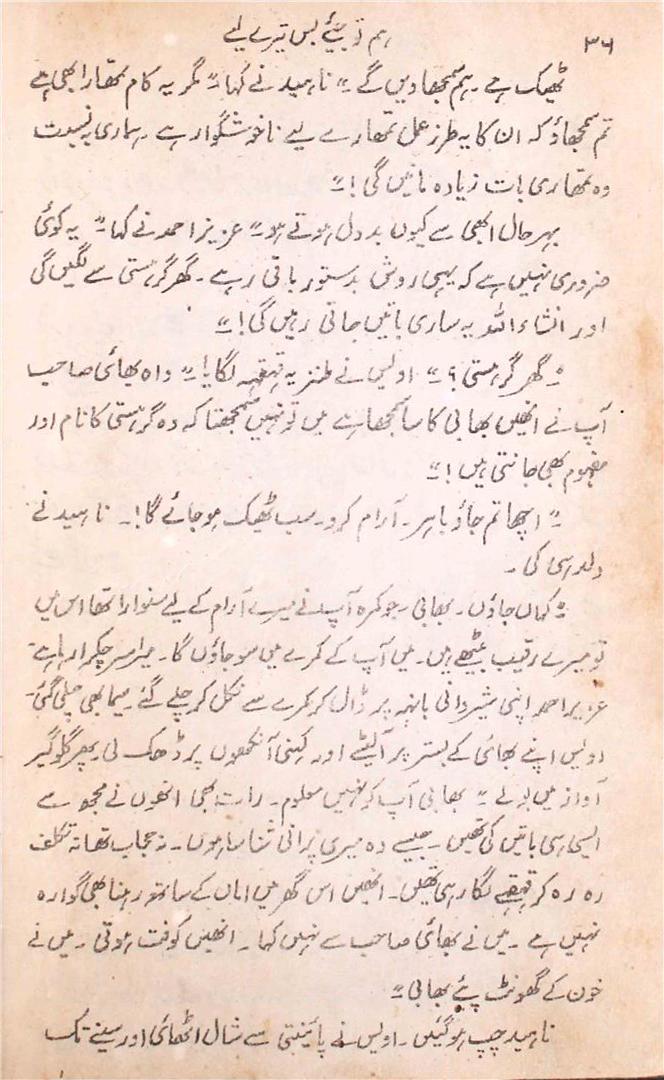 ۳۶ ہم تو جئے بس تیرے لیے
ٹھیک ہے۔ ہم سمجھا دیں گے۔" ناہید نے کہا۔" مگر یہ کام تمھارا بھی ہے
تم سمجھاؤ کہ ان کا یہ طرز عمل تمھارے لیے ناخوشگوار ہے۔ ہماری بہ نسبت
وہ تمھاری بات زیادہ مانیں گی!"
بہر حال ابھی سے کیوں بددل ہوتے ہو" عزیز احمد نے کہا۔" یہ کوئی
ضروری نہیں ہے کہ یہی روش بدستور باقی رہے۔ گھر گرہستی سے لگیں گی
اور انشاء اللہ یہ ساری باتیں جاتی رہیں گی!"
"گھر گرہستی؟" اویس نے طنزیہ قہقہہ لگایا!" واہ بھائی صاحب
آپ نے انھیں بھابی کا سا سمجھا ہے میں تو نہیں سمجھتا کہ وہ گرہستی کا نام اور
مفہوم بھی جانتی ہیں!"
"اچھا تم جاؤ باہر۔ آرام کرو۔ سب ٹھیک ہو جائے گا!۔ ناہید نے
دلدہی کی۔
"کہاں جاؤں۔ بھابی۔ جو کمرہ آپ نے میرے آرام کے لیے سنوارا تھا اس میں
تو میرے رقیب بیٹھے ہیں۔ میں آپ کے کمرے میں سو جاؤں گا۔ میرا سر چکرا رہا ہے۔
عزیز احمد اپنی شیروانی بانہہ پر ڈال کر کمرے سے نکل کر چلے گئے۔ سیما بھی چلی گئی۔
اویس اپنے بھائی کے بستر پر آلیٹے اور کہنی آنکھوں پر ڈھک لی۔ پھر گلوگیر
آواز میں بولے" بھابی آپ کو نہیں معلوم۔ رات بھی انھوں نے مجھ سے
ایسی ہی باتیں کی تھیں۔ جیسے وہ میری پرانی شناسا ہوں۔ نہ حجاب تھا نہ تکلف
رہ رہ کر قہقہے لگا رہی تھیں۔ انھیں اس گھر میں اماں کے ساتھ رہنا بھی گوارہ
نہیں ہے۔ میں نے بھائی صاحب سے نہیں کہا۔ انھیں کوفت ہوتی۔ میں نے
خون کے گھونٹ پئے بھابی"
ناہید چپ ہو گئیں۔ اویس نے پائینتی سے شال اٹھائی اور سینے تک